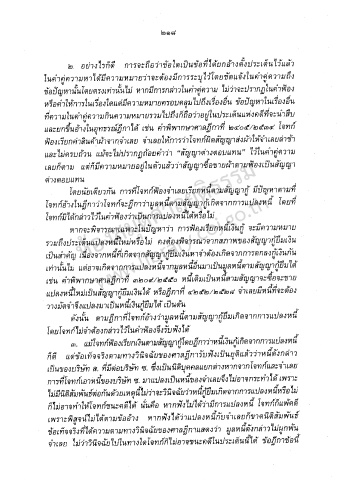 ๒๑๘
๒. อย่างไรก็ดี การจะถือว่าข้อใดเป็นข้อที่ได้ยกอ้างตั้งประเด็นไว้แล้ว
ในคำคู่ความหาได้มีความหมายว่าจะต้องมีการระบุไว้โดยชัดแจ้งในคำคู่ความถึง
ข้อปัญหานั้นโดยตรงเท่านั้นไม่ หากมีการกล่าวในคำคู่ความ ไม่ว่าจะปรากฏในคำฟ้อง
หรือคำให้การในเรื่องใดแต่มีความหมายครอบคลุมไปถึงเรื่องอื่น ข้อปัญหาในเรื่องอื่น
ที่ความในคำคู่ความกินความหมายรวมไปถึงก็ถือว่าอยู่ในประเด็นแห่งคดีที่จะนำสืบ
และยกขึ้นอ้างในอุทธรณ์ฎีกาได้ เช่น คำพิพากษาศาลฎีกาที่ ๒๔๐๕/๒๕๓๔ โจทก์
ฟ้องเรียกค่าสินค้าผ้าจากจำเลย จำเลยให้การว่าโจทก์ผิดสัญญาส่งผ้าให้จำเลยล่าช้า
และไม่ครบถ้วน แม้จะไม่ปรากฏถ้อยคำว่า "สัญญาต่างตอบแทน" ไว้ในคำคู่ความ
เลยก็ตาม แต่ก็มีความหมายอยู่ในตัวแล้วว่าสัญญาซื้อขายผ้าตามฟ้องเป็นสัญญา
ต่างตอบแทน
โดยนัยเดียวกัน การที่โจทก์ฟ้องจำเลยเรียกหนี้ตามสัญญากู้ มีปัญหาตามที่
โจทก์อ้างในฎีกาว่าโจทก์จะฎีกาว่ามูลหนี้ตามสัญญากู้เกิดจากการแปลงหนี้ โดยที่
โจทก์มิได้กล่าวไว้ในคำฟ้องว่าเป็นการแปลงหนี้ได้หรือไม่
หากจะพิจารณาเฉพาะในปัญหาว่า การฟ้องเรียกหนี้เงินกู้ จะมีความหมาย
รวมถึงประเด็นแปลงหนี้ใหม่หรือไม่ คงต้องพิจารณาจากสภาพของสัญญากู้ยืมเงิน
เป็นสำคัญ เนื่องจากหนี้ที่เกิดจากสัญญากู้ยืมเงินหาจำต้องเกิดจากการตกลงกู้เงินกัน
เท่านั้นไม่ แต่อาจเกิดจากการแปลงหนี้จากมูลหนี้อื่นมาเป็นมูลหนี้ตามสัญญากู้ยืมได้
เช่น คำพิพากษาศาลฎีกาที่ ๓๒๐๙/๒๕๕๐ หนี้เดิมเป็นหนี้ตามสัญญาจะซื้อจะขาย
แปลงหนี้ใหม่เป็นสัญญากู้ยืมเงินได้ หรือฎีกาที่ ๔๒๕๒/๒๕๒๘ จำเลยมีหนี้ที่จะต้อง
วางมัดจำจึงแปลงมาเป็นหนี้เงินกู้ยืมได้ เป็นต้น
ดังนั้น ตามฎีกาที่โจทก์อ้างว่ามูลหนี้ตามสัญญากู้ยืมเกิดจากการแปลงหนี้
โดยโจทก์ไม่จำต้องกล่าวไว้ในคำฟ้องจึงรับฟังได้
๓. แม้โจทก์ฟ้องเรียกเงินตามสัญญากู้โดยฎีกาว่าหนี้เงินกู้เกิดจากการแปลงหนี้
ก็ดี แต่ข้อเท็จจริงตามทางวินิจฉัยของศาลฎีการับฟังเป็นยุติแล้วว่าหนี้ดังกล่าว
เป็นของบริษัท ส. ที่มีต่อบริษัท ช. ซึ่งเป็นนิติบุคคลแยกต่างหากจากโจทก์และจำเลย
การที่โจทก์เอาหนี้ของบริษัท ช. มาแปลงเป็นหนี้ของจำเลยจึงไม่อาจกระทำได้ เพราะ
ไม่มีนิติสัมพันธ์ต่อกันด้วยเหตุนี้ไม่ว่าจะวินิจฉัยว่าหนี้กู้ยืมเกิดจากการแปลงหนี้หรือไม่
ก็ไม่อาจทำให้โจทก์ชนะคดีได้ นั่นคือ หากฟังไม่ได้ว่ามีการแปลงหนี้ โจทก์ก็แพ้คดี
เพราะพิสูจน์ไม่ได้ตามข้ออ้าง หากฟังได้ว่าแปลงหนี้กับจำเลยก็ขาดนิติสัมพันธ์
ข้อเท็จจริงที่ได้ความตามทางวินิจฉัยของศาลฎีกาแสดงว่า มูลหนี้ดังกล่าวไม่ผูกพัน
จำเลย ไม่ว่าวินิจฉัยไปในทางใดโจทก์ก็ไม่อาจชนะคดีในประเด็นนี้ได้ ข้อฎีกาข้อนี้